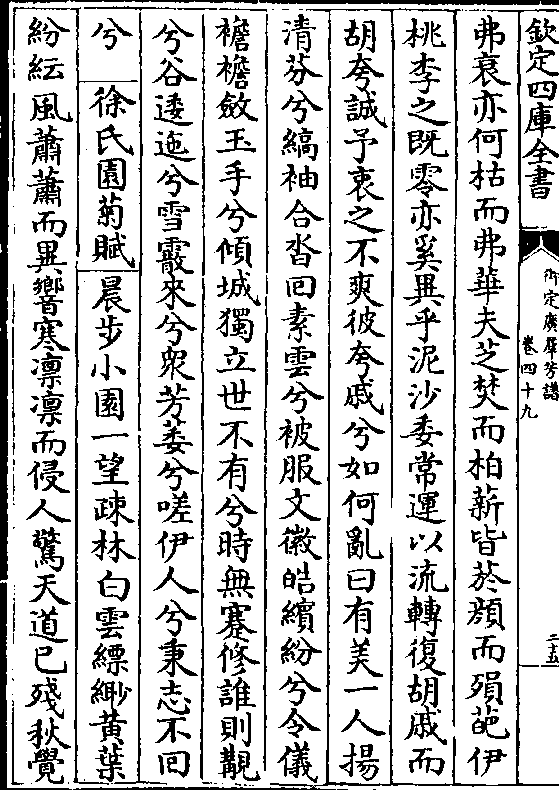 欽定四庫全書
御定廣羣芳譜
卷四十九
二十五
弗衰亦何枯而弗華夫芝焚而柏薪皆菸顔而殞葩伊
桃李之既零亦奚異乎泥沙委常運以流轉復胡戚而
胡夸誠予衷之不爽彼夸戚兮如何亂曰有美一人揚
清芬兮縞袖合沓回素雲兮被服文徽皓繽紛兮令儀
襜襜斂玉手兮傾城獨立世不有兮時無蹇修誰則覯
兮谷逶迤兮雪霰來兮衆芳萎兮嗟伊人兮秉志不回
兮 徐氏園菊賦 晨步小園一望疎林白雲縹緲黄葉
紛紜風蕭蕭而異響寒凛凛而侵人驚天道已殘秋覺